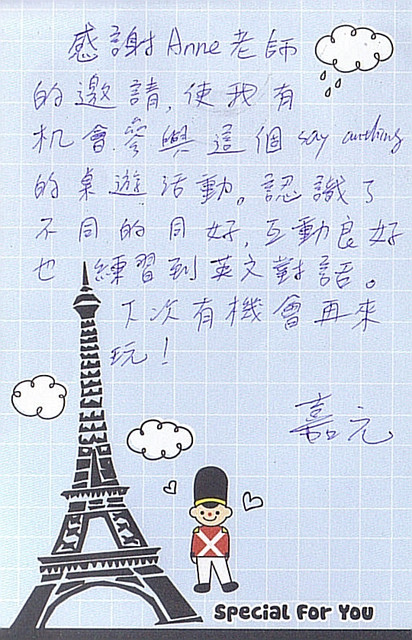 感謝Anne老師
的邀請,使我有
机會參與這個say anything
的桌遊活動。認識了
不同的同好,互動良好
也練習到英文對話。
下次有機會再來
玩!
嘉元
Special For You